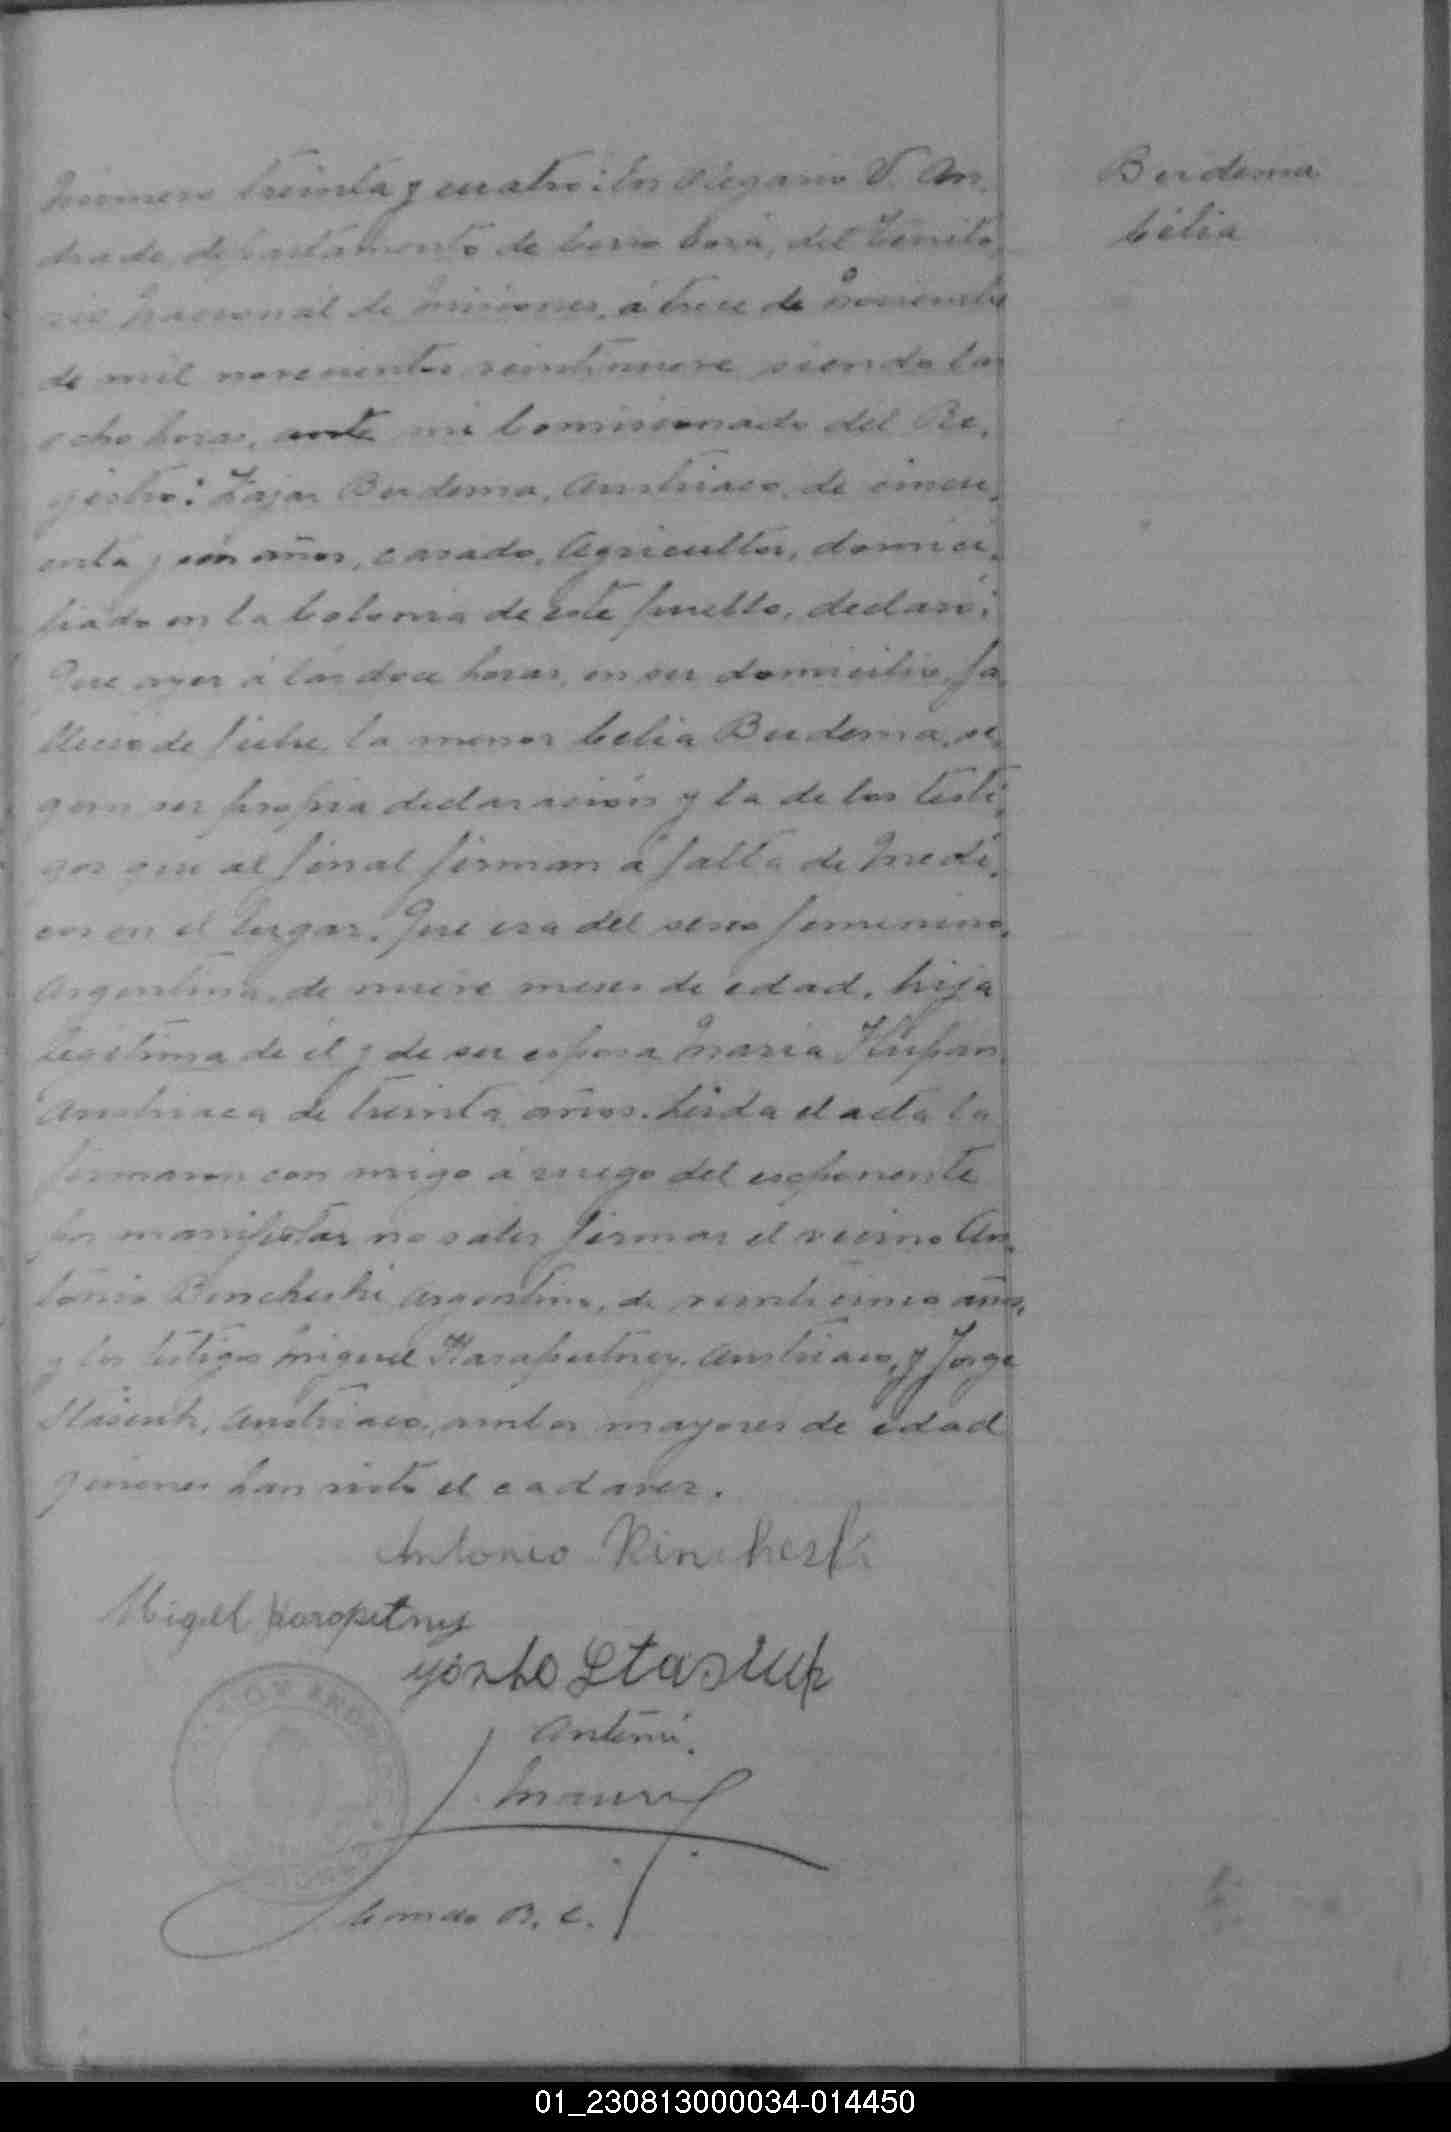 Berdema
Celia
Número treinta y cuatro: En Olegario V. An-
drade, departamento de Cerro Corá, del Territo-
rio Nacional de Misiones, á trece de Noviembre
de mil novecientos veintinueve siendo las
ocho horas, ante mi Comisionado del Re-
gistro: Zajar Berdema, Austriaco, de cincu-
enta y un años, casado, Agricultor, domici-
liado en la Colonia de este pueblo, declaró:
Que ayer á las doce horas, en su domicilio, fa-
lleció de fiebre la menor Celia Berdema, se-
gun su propia declaración y la de los testi-
gos que al final firman á falta de Medi-
cos en el lugar. Que era del sexo femenino,
Argentina, de nueve meses de edad, hija
legítima de él y de su esposa Maria Kupan
Austriaca de treinta años. Leida el acta la
firmaron con migo á ruego del exponente
por manifestar no saber firmar el vecino An-
tonio Rencheski Argentino, de veinticinco años,
y los testigos Miguel Karapetney, Austriaco, y Jorge
Austriaco, ambos mayores de edad
quienes han visto el cadaver.
Antonio Rincheski
Migel Karopetney
Antemi
Comdo R. C.
01_230813000034-014450